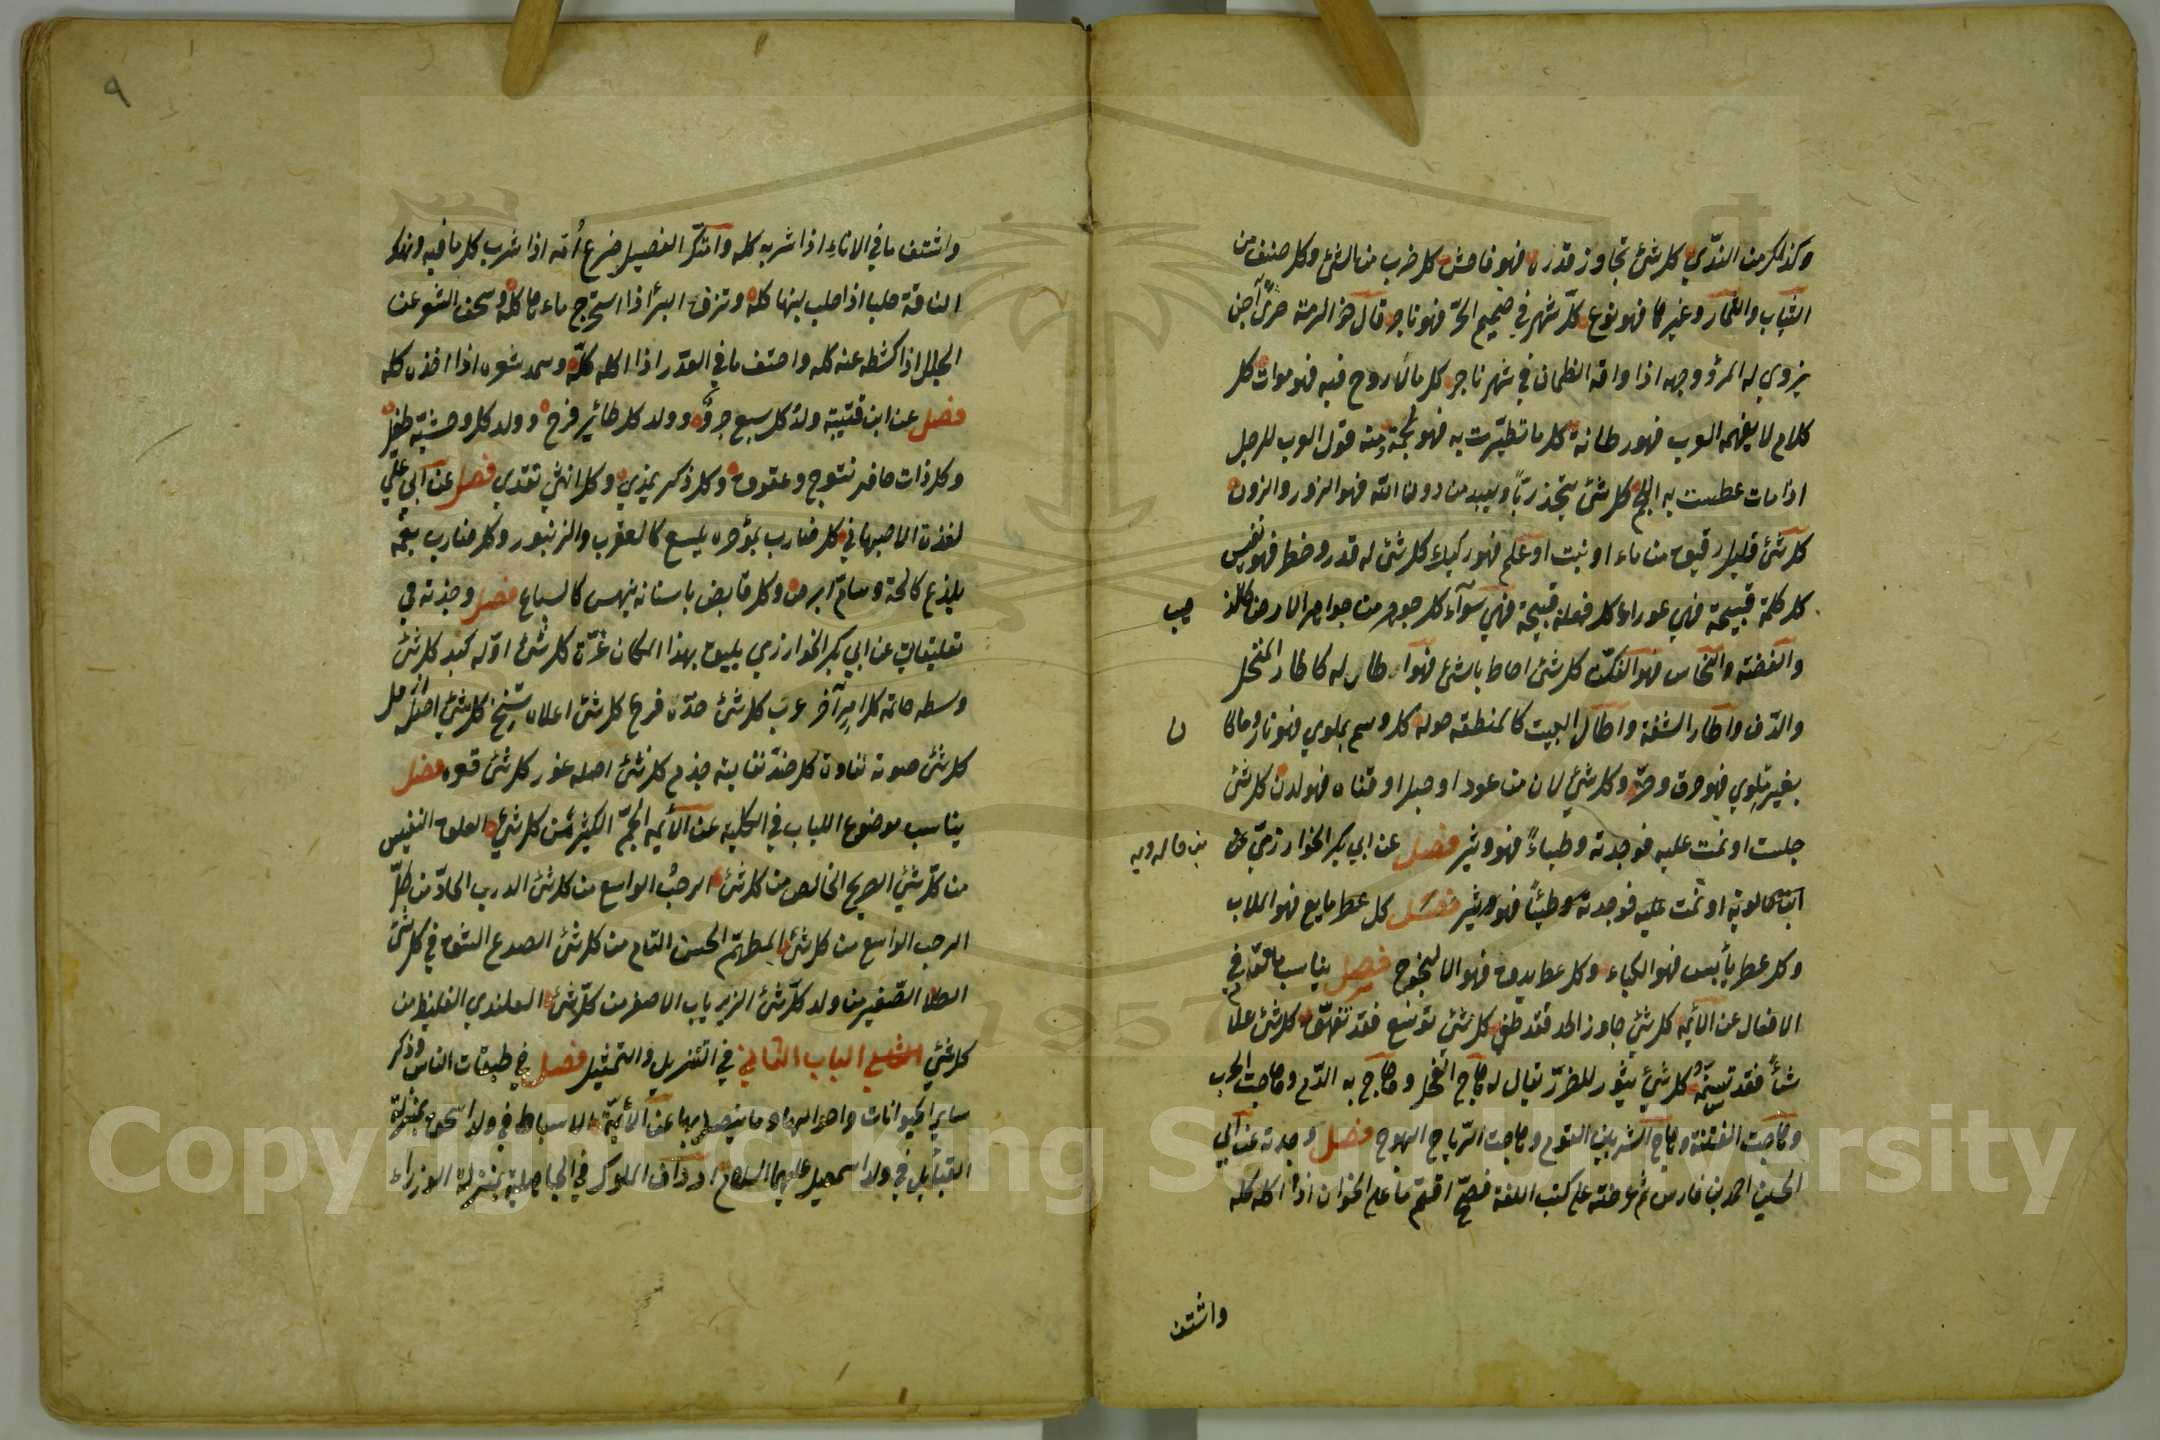 وكذلك من الندي كل شئ تجاوز قدره فهو فاحش كل ضرب من الشئ وكل صنف من
الثياب والثمار وغيرها فهو نوع كل شهر في صميم الحر فهو ناجر قال ذو الرمة صرى آجن
يزوي له المرؤ وجهه اذا ذاقه الظمان في شهر ناجر كل مالا روح فيه فهو موات كل
كلام لا يفهمه العرب فهو رطانة كل ما تطيرت به فهو لجمة ومنه قول العرب للرجل
اذا مات عطست به اللجم كل شئ يتخذ ربا ويعبد من دون الله فهو الزور والزون
كل شئ قليل رقيق من ماء او نبت او علم فهو ركيك كل شئ له قدر وخطر فهو نفيس
كل كلمة قبيحة فهي عوراء كل فعلة قبيحة فهي سوآء كل جوهر من جواهر الارض كالذ
هب
والفضة والنحاس فهو الفلز كل شئ احاط بالشئ فهو اطار له كاطار المنخل
والدف واطار الشفة واطار البيت كالمنطقة حوله كل وسم بمكوي فهو نار وما كا
ن
بغير مكوي فهو حرق وحز وكل شئ لان من عود او حبل او قناة فهو لدن كل شئ
جلست او نمت عليه فوجدته وطيئا فهو وثير فصل عن ابي بكر الخوارزمي عن
ابن خالويه او نمت عليه فوجدته وطيئا فهو وثير فصل كل عطر مايع فهو الملاب
بن خالويه
وكل عطر يأبس فهو الكباء وكل عطر يدق فهو الالنجوج فصل يناسب ما تقدم في
الافعال عن الأئمة كل شئ جاوز الحد فقد طغى كل شئ توسع فقد تفهق كل شئ علا
شئا فقد تسنمه كل شئ يثور للضرر يقال له هاج الفحل وهاج به الدم وهاجت الحرب
وهاجت الفتنة وهاج الشر بين القوم وهاجت الرياح الهوج فصل وجدته عن ابي
الحسين احمد بن فارس ثم عرضته على كتب اللغة فصح اقتم ما على الخوان اذا اكله كله
واشتف
٩
واشتف ما في الاناء اذا شربه كله وامتك الفصيل ضرع أمه اذا شرب كل ما فيه ونهك
الناقة حلبا اذا حلب لبنها كله ونزف البئر اذا استخرج ماءها كله وسحف الشعر عن
الجلد اذا كشطه عنه كله واحتف ما في القدر اذا اكله كله وسمد شعره اذا اخذه كله
فصل عن ابن قتيبة ولد كل سبع جرو وولد كل طائر فرخ وولد كل وحشية طفل
وكل ذات حافر نتوج وعقوق وكل ذكر يمذي وكل انثى تقذي فصل عن ابي علي
لغذة الاصبهاني كل ضارب بمؤخره يلسع كالعقرب والزنبور وكل ضارب بفمه
يلدغ كالحية وسام ابرص وكل قابض باسنانه ينهس كالسباع فصل وجدته في
تعليقاتي عن ابي بكر الخوارزمي يليق بهذا المكان غرة كل شئ اوله كبد كل شئ
وسطه خاتمة كل امر آخره غرب كل شئ حده فرع كل شئ اعلاه سنخ كل شئ اصله ازمل
كل شئ صوته نقاوة كل ضد نفايته جذم كل شئ اصله غور كل شئ قعره فصل
يناسب موضوع الباب في الكلية عن الأئمة الجم الكثير من كل شئ العلق النفيس
من كل شئ الصريح الخالص من كل شئ الرحب الواسع من كل شئ الذرب الحاد من كل
الرحب الواسع من كل شئ المطهم الحسن التام من كل شئ الصدع الشق في كل شئ
الطلا الصغير من ولد كل شئ الزرياب الاصفر من كل شئ العلندي الغليظ من
كل شئ الباب الثاني في التنزيل والتمثيل فصل في طبقات الناس وذكر
ساير الحيوانات واحوالها وما يتصل بها عن الأئمة الاسباط في ولد اسحق بمنزلة
القبائل في ولد اسمعيل عليهما السلام ارداف الملوك في الجاهلية بمنزلة الوزراء
Copyright © King Saud University
1957